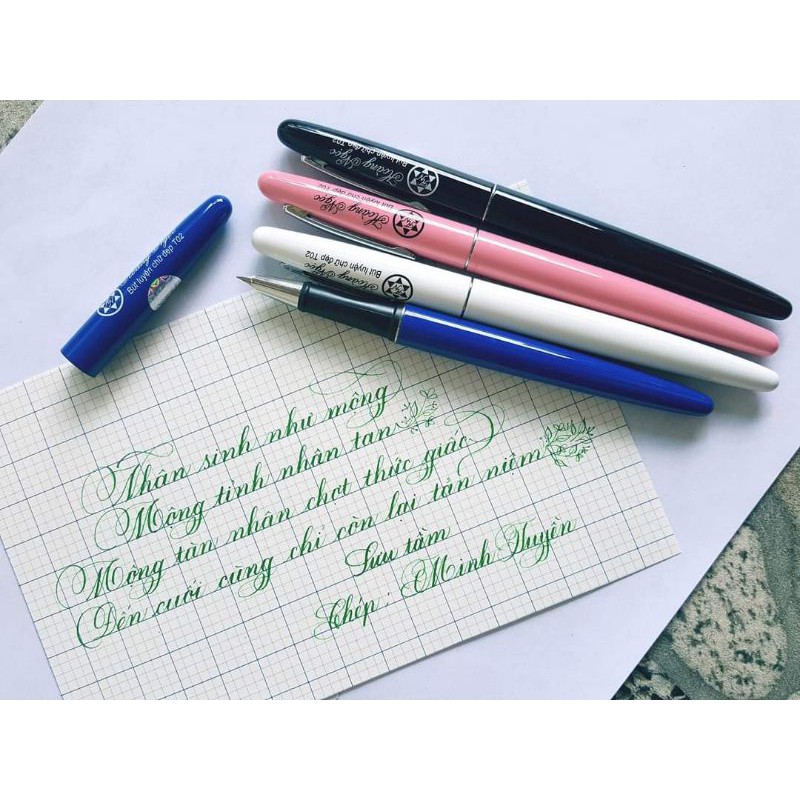 Hoàng Ngọc
Bút luyện chữ đẹp T02
Hoàng Ngọc
Bút luyện chữ đẹp T02
Hoàng Ngọc
Bút luyện chữ đẹp T02
Bút luyện chữ đẹp T02
Nhân sinh như mộng
Mộng tỉnh nhân tan
Mộng tàn nhân chợt thức giấc
Đến cuối cùng chỉ còn lại tàn niệm
Sưu tầm
Chép : Minh Huyền